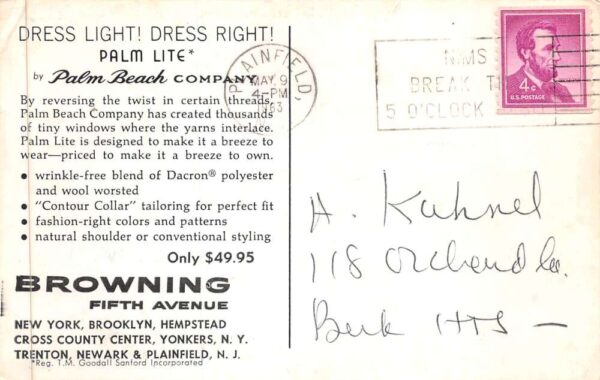 DRESS LIGHT! DRESS RIGHT!
PALM LITE*
by Palm Beach COMPANY
By reversing the twist in certain threads,
Palm Beach Company has created thousands
of tiny windows where the yarns interlace.
Palm Lite is designed to make it a breeze to
wear—priced to make it a breeze to own.
• wrinkle-free blend of Dacron® polyester
and wool worsted
• "Contour Collar" tailoring for perfect fit
• fashion-right colors and patterns
• natural shoulder or conventional styling
Only $49.95
BROWNING
FIFTH AVENUE
NEW YORK, BROOKLYN, HEMPSTEAD
CROSS COUNTY CENTER, YONKERS, N. Y.
TRENTON, NEWARK & PLAINFIELD, N. J.
*Reg. T.M. Goodall Sanford Incorporated
PLAINFIELD,
MAY 9
4-PM
NIMS
BREAK
5 O'CLOCK
4¢
U.S. POSTAGE
H. Kuhnel
118 Orchard
Berk HTS —